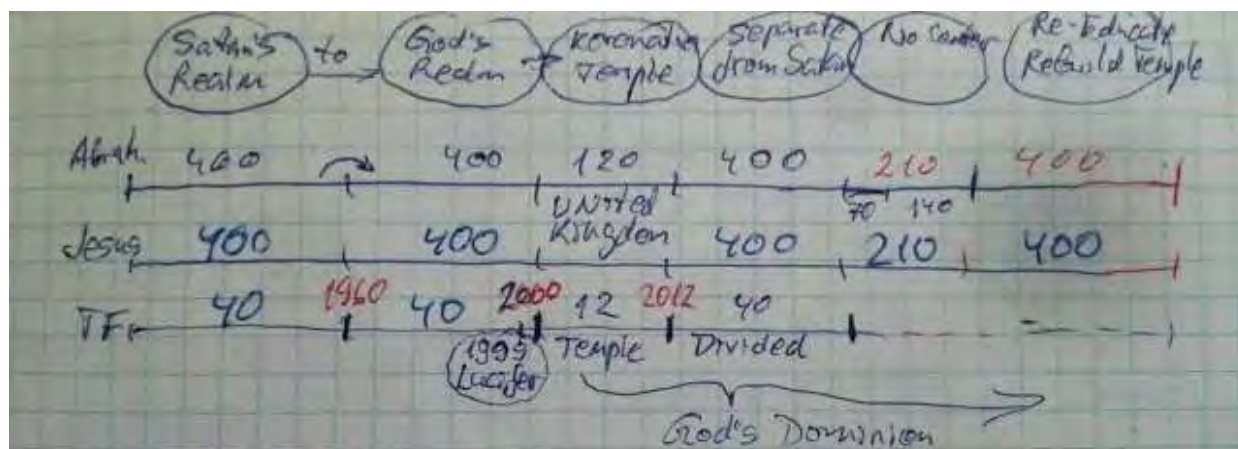 Satan's Realm to God's Realm Koronation Temple Separate from Satan No Center Re-Educate ReBuild Temple
Abrah. 400 400 120 400 210 400
70 140
United Kingdom
Jesus 400 400 400 210 400
TF 40 1960 40 2000 12 2012 40
1999 Lucifer Temple Divided
God's Dominion